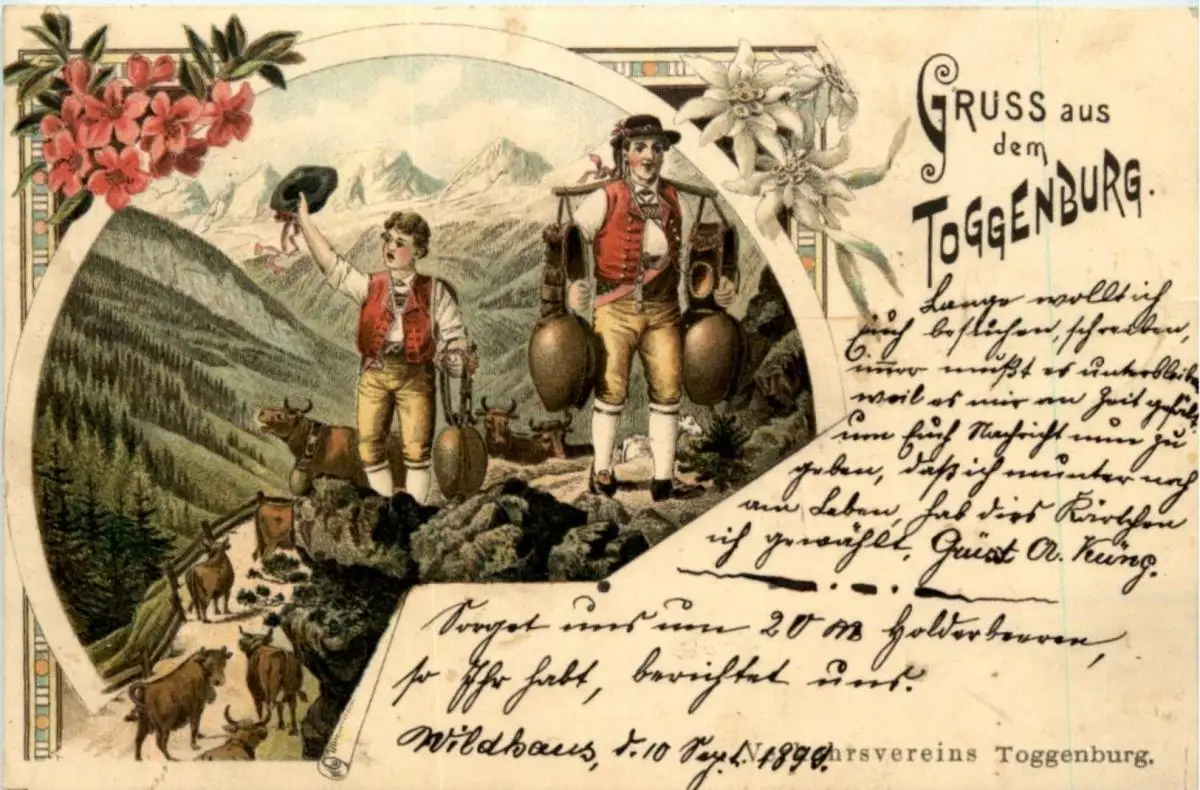 GRUSS aus
dem
TOGGENBURG.
Lange wollt ich
Euch besuchen, schreiben,
immer mußt es unterbleiben
weil es mir an Zeit gefehlt,
um Euch Nachricht nun zu
geben, daß ich munter noch
am Leben, hab dies Kärtchen
ich gewählt. Grust A. Küng.
Sorget uns um 20 Holderbeeren,
so Ihr habt, berichtet uns.
Wildhaus, d. 10 Sept. 1899.
Toggenburg.